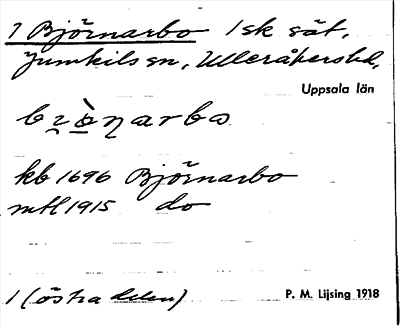 1 Björnarbo 1 sk sät.
Jumkils sn, Ulleråkers hd,
Uppsala län
kb 1696 Björnarbo
mtl 1915 do
1 (östra delen)
P. M. Lijsing 1918